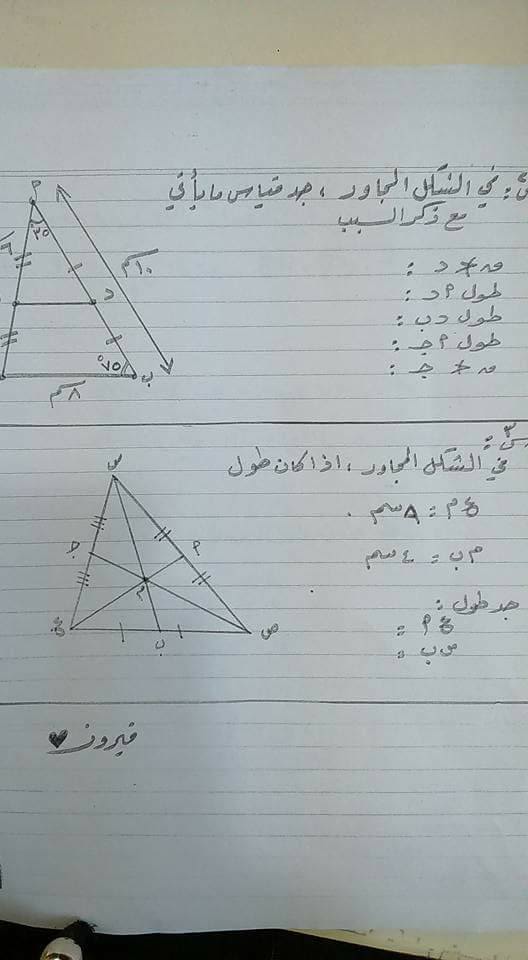 في الشكل المجاور ، جد قياس ما يأتي
مع ذكر السبب
ق∢ د :
طول أ د :
طول د ب :
طول أ جـ :
ق∢ جـ :
أ
٣٠
١٠ سم
د
٧٥°
ب
٨ سم
س٣ :
في الشكل المجاور ، اذا كان طول
ع م = ٨ سم .
م ب = ٤ سم
جد طول :
ع أ =
س ب =
س
جـ
أ
م
ع
ب
ص
فيروز ♥